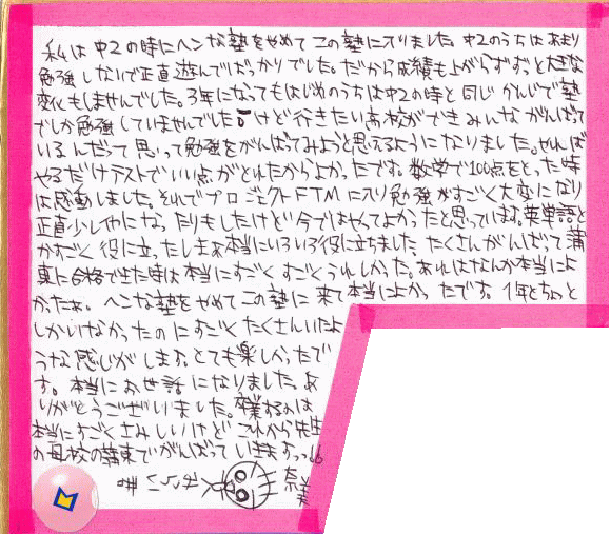 私は中2の時にヘンな塾をやめてこの塾に入りました。中2のうちはあまり
勉強しないで正直遊んでばっかりでした。だから成績も上がらずずっと大きな
変化もしませんでした。3年になってもはじめのうちは中2の時と同じかんじで塾
でしか勉強していませんでした。けど行きたい高校ができみんながんばって
いるんだって思って勉強をがんばってみようと思えるようになりました。やれば
やるだけテストでいい点がとれたからよかったです。数学で100点をとった時
は感動しました。それでプロジェクトFTMに入り勉強がすごく大変になり
正直少しイヤになったりもしたけど今ではやってよかったと思っています。英単語と
かすごく役に立ったしまぁ本当にいろいろ役に立ちました。たくさんがんばって蒲
東に合格できた時は本当にすごくすごくうれしかった。あれはなんか本当によ
かったぁ。ヘンな塾をやめてこの塾に来て本当によかったです。1年とちょっと
しかいなかったのにすごくたくさんいたよ
うな感じがします。とても楽しかったで
す。本当にお世話になりました。あ
りがとうございました。卒業するのは
本当にすごくさみしいけどこれから先生
の母校の蒲東でがんばっていきまーすっ
奈美